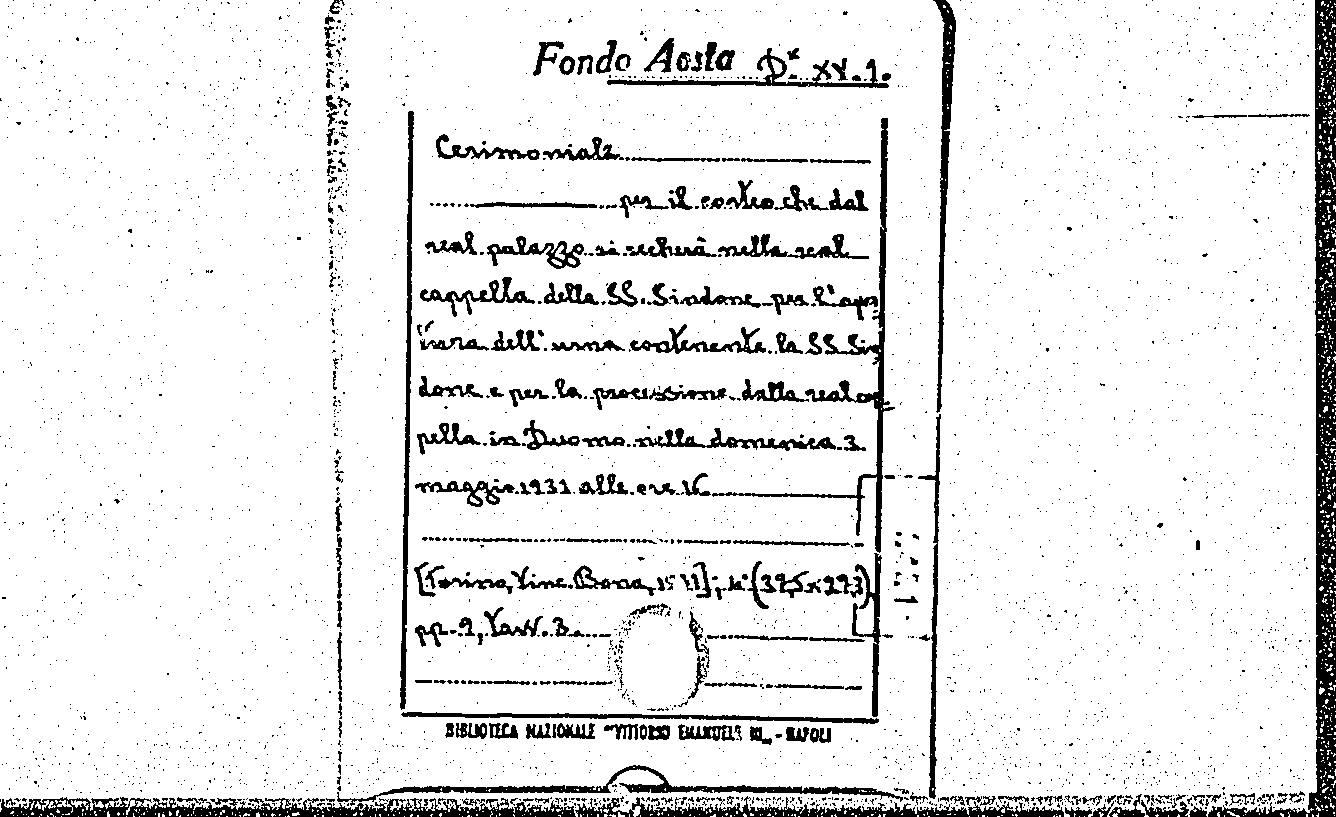 Fondo Aosta D.x XV.1.
Cerimoniale
per il corteo che dal
real palazzo si recherà nella real
cappella della SS. Sindone per l'aper
tura dell'urna contenente la SS Sin
done e per la processione dalla real cap
pella in Duomo nella domenica 3
maggio 1931 alle ore 16
[Torino, Vinc. Bona, 1931]; 4° (395x293)
pp. 9, tavv. 3.
BIBLIOTECA NAZIONALE "VITTORIO EMANUELE III„ - NAPOLI